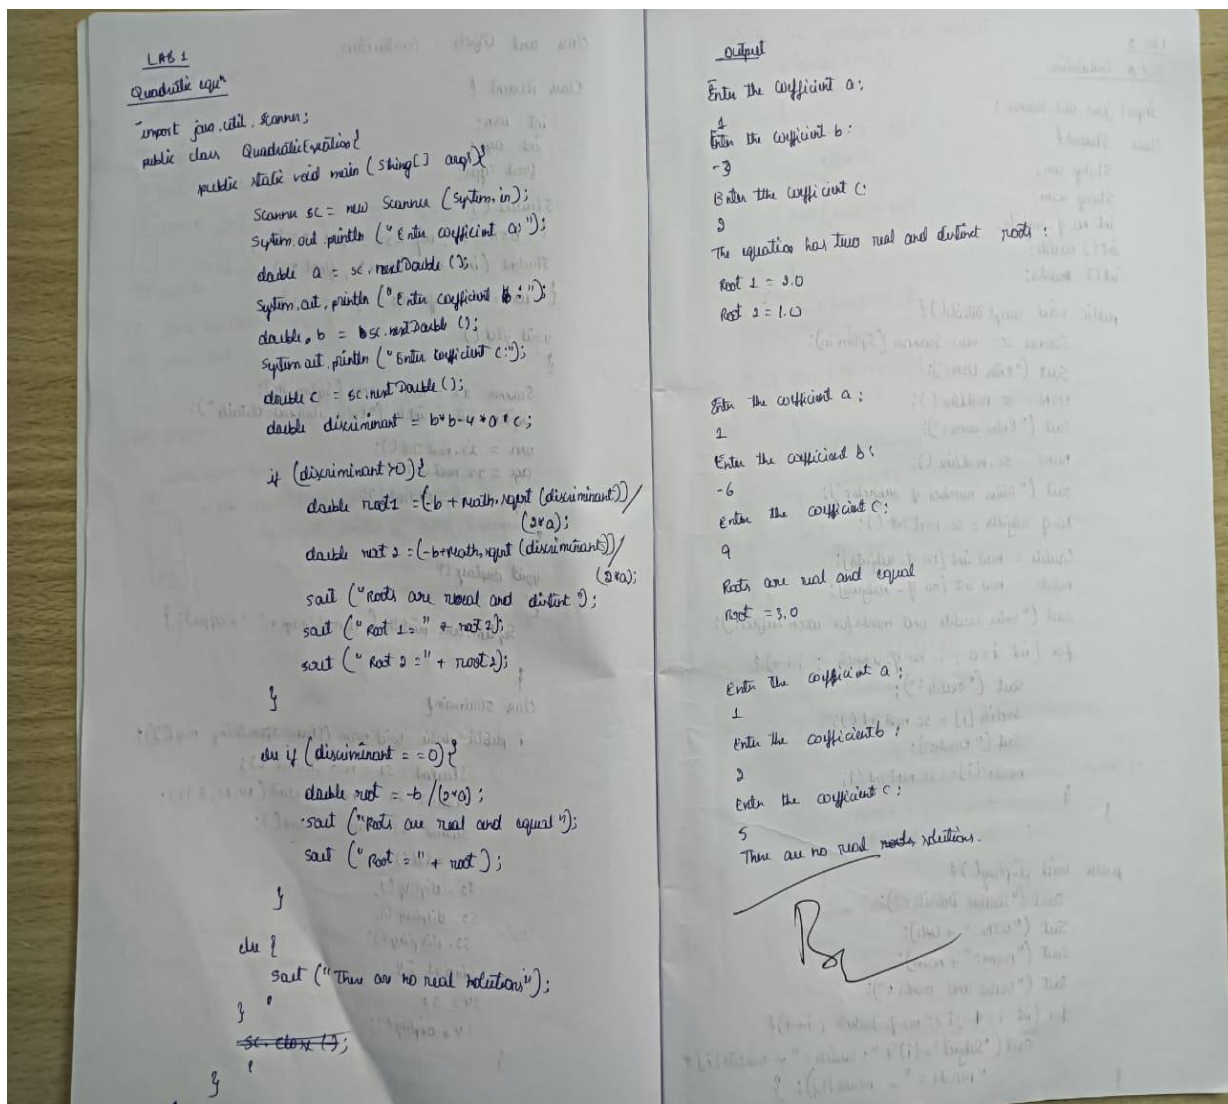 LAB 1
Quadratic equⁿ
import java.util.Scanner;
public class QuadraticEquation{
public static void main (String[] args){
Scanner sc = new Scanner (System.in);
System.out.println ("Enter coefficient a:");
double a = sc.nextDouble ();
System.out.println ("Enter coefficient b:");
double b = sc.nextDouble ();
System.out.println ("Enter coefficient c:");
double c = sc.nextDouble ();
double discriminant = b*b-4*a*c;
if (discriminant>0){
double root1 = (-b + Math.sqrt (discriminant))/
(2*a);
double root 2 = (-b+Math.sqrt (discriminant))/
(2*a);
sout ("Roots are real and distint");
sout ("Root 1=" + root 2);
sout ("Root 2=" + root2);
}
else if (discriminant ==0){
double root = -b/(2*a);
sout ("Roots are real and equal");
sout ("Root =" + root);
}
else {
sout ("There are no real solutions");
}
sc.close ();
}
Output
Enter the coefficient a:
1
Enter the coefficient b:
-3
Enter the coefficient c:
2
The equation has two real and distinct roots:
Root 1 = 2.0
Root 2 = 1.0
Enter the coefficient a:
1
Enter the coefficient b:
-6
Enter the coefficient c:
9
Roots are real and equal
Root = 3.0
Enter the coefficient a:
1
Enter the coefficient b:
2
Enter the coefficient c:
5
There are no real roots solutions.